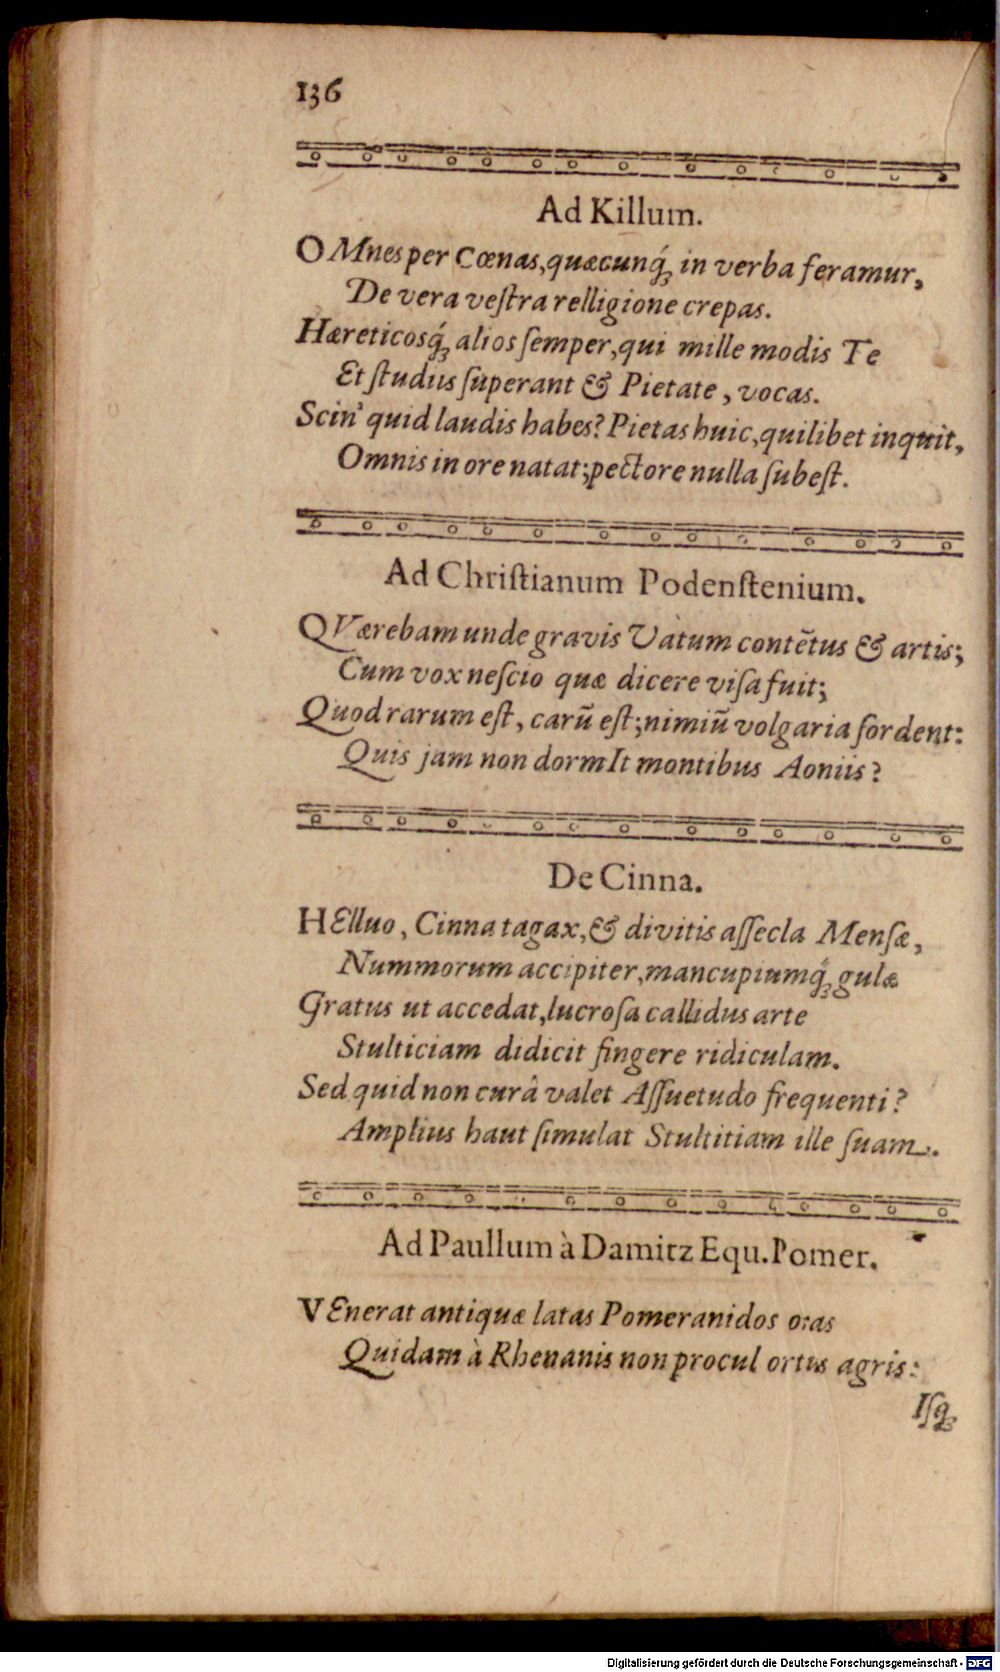 136
Ad Killum.
OMnes per Cœnas, quæcunq́; in verba feramur,
De vera veſtra relligione crepas.
Hæreticosq́; alios ſemper, qui mille modis Te
Et ſtudiis ſuperant & Pietate, vocas.
Scin' quid laudis habes? Pietas huic, quilibet inquit,
Omnis in ore natat; pectore nulla ſubeſt.
Ad Chriſtianum Podenſtenium.
QVærebam unde gravis Vatum contẽtus & artis;
Cum vox neſcio quæ dicere viſa fuit;
Quod rarum eſt, carũ eſt; nimiũ volgaria ſordent:
Quis jam non dormIt montibus Aoniis?
De Cinna.
HElluo, Cinna tagax, & divitis aſſecla Menſæ,
Nummorum accipiter, mancupiumq́; gulæ
Gratus ut accedat, lucroſa callidus arte
Stulticiam didicit fingere ridiculam.
Sed quid non curâ valet Aſſuetudo frequenti?
Amplius haut ſimulat Stultitiam ille ſuam.
Ad Paullum à Damitz Equ. Pomer.
VEnerat antiquæ latas Pomeranidos oras
Quidam à Rhenanis non procul ortus agris:
Iſq;
Digitalisierung gefördert durch die Deutsche Forschungsgemeinschaft - DFG